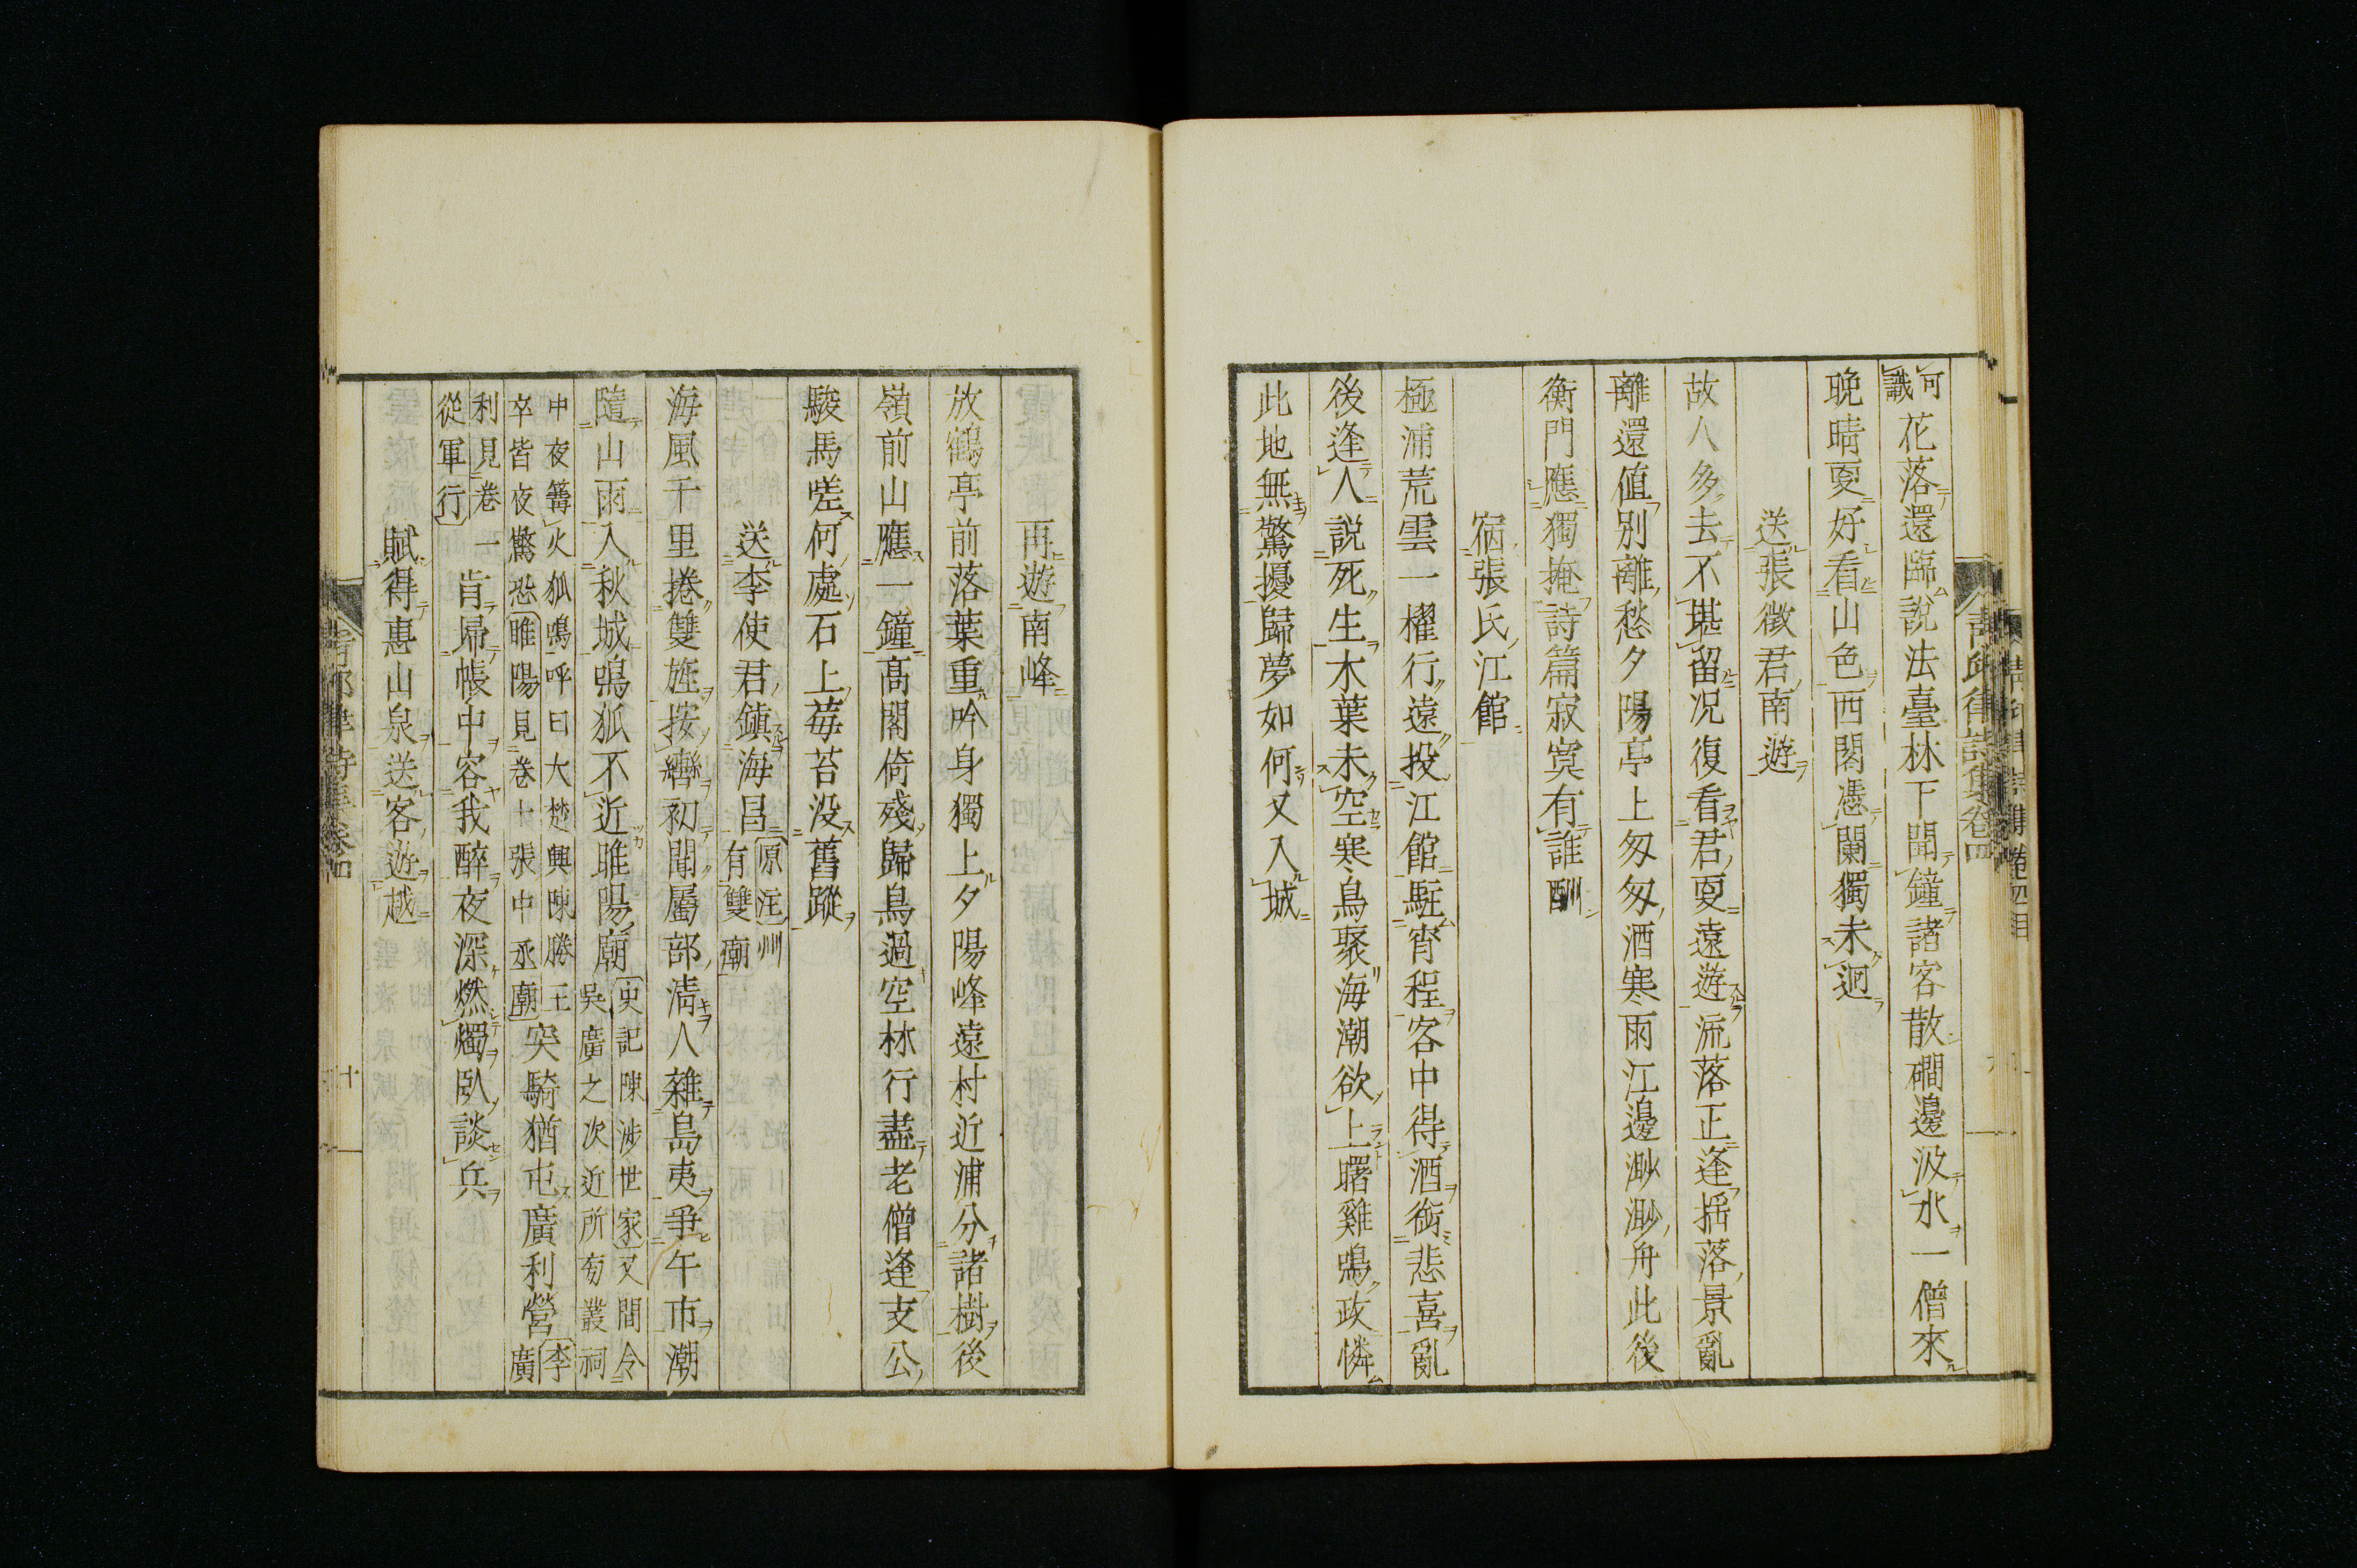 可
識
花落還臨說法臺林下聞鐘諸客散磵邊汲水一僧來
晚晴更好看山色西閣憑闌獨未迴
送張徵君南遊
故人多去不堪留况復看君更遠遊流落正逢揺落景亂
離還値別離愁夕陽亭上匆匆酒寒雨江邊渺渺舟此後
衡門應獨掩詩篇寂寞有誰酬
宿張氏江館
極浦荒雲一櫂行遠投江館駐宵程客中得酒銜悲喜亂
後逢人說死生木葉未空寒鳥聚海潮欲上曙雞鳴政憐
此地無驚擾歸夢如何又入城
再遊南峰
放鶴亭前落葉重吟身獨上夕陽峰遠村近浦分諸樹後
嶺前山應一鐘高閣倚殘歸鳥過空林行盡老僧逢支公
駿馬嗟何處石上莓苔没舊蹤
送李使君鎮海昌
原注州
有雙廟
海風千里捲雙旌按轡初聞屬部淸人雜島夷爭午市潮
隨山雨入秋城鳴狐不近睢陽廟
史記陳涉世家又間令
吳廣之次近所旁叢祠
中夜篝火狐鳴呼曰大楚興陳勝王
卒皆夜驚恐睢陽見卷十張中丞廟
突騎猶屯廣利營
李
廣
利見卷一
從軍行
肯帰帳中容我醉夜深燃燭臥談兵
賦得惠山泉送客遊越
青邱律詩集卷四
十